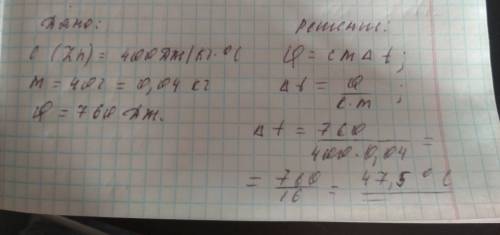 Дано:
c (Zn) = 400 Дж/кг·°C
m = 40г = 0,04 кг
Q = 760 Дж.
Решение:
Q = cmΔt;
Δt = Q / c·m ;
Δt = 760 / 400·0,04 =
= 760 / 16 = 47,5 °C